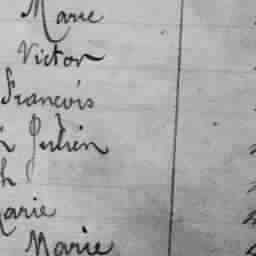 Marie
Victor
Francois
h Julien
h
Marie
Marie